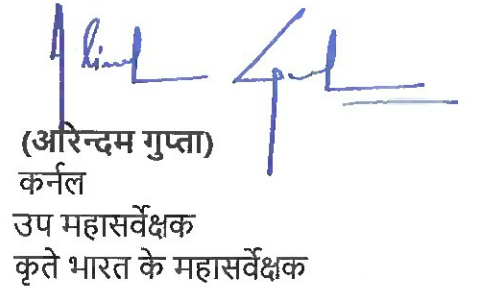 (अरिन्दम गुप्ता)
कर्नल
उप महासर्वेक्षक
कृते भारत के महासर्वेक्षक